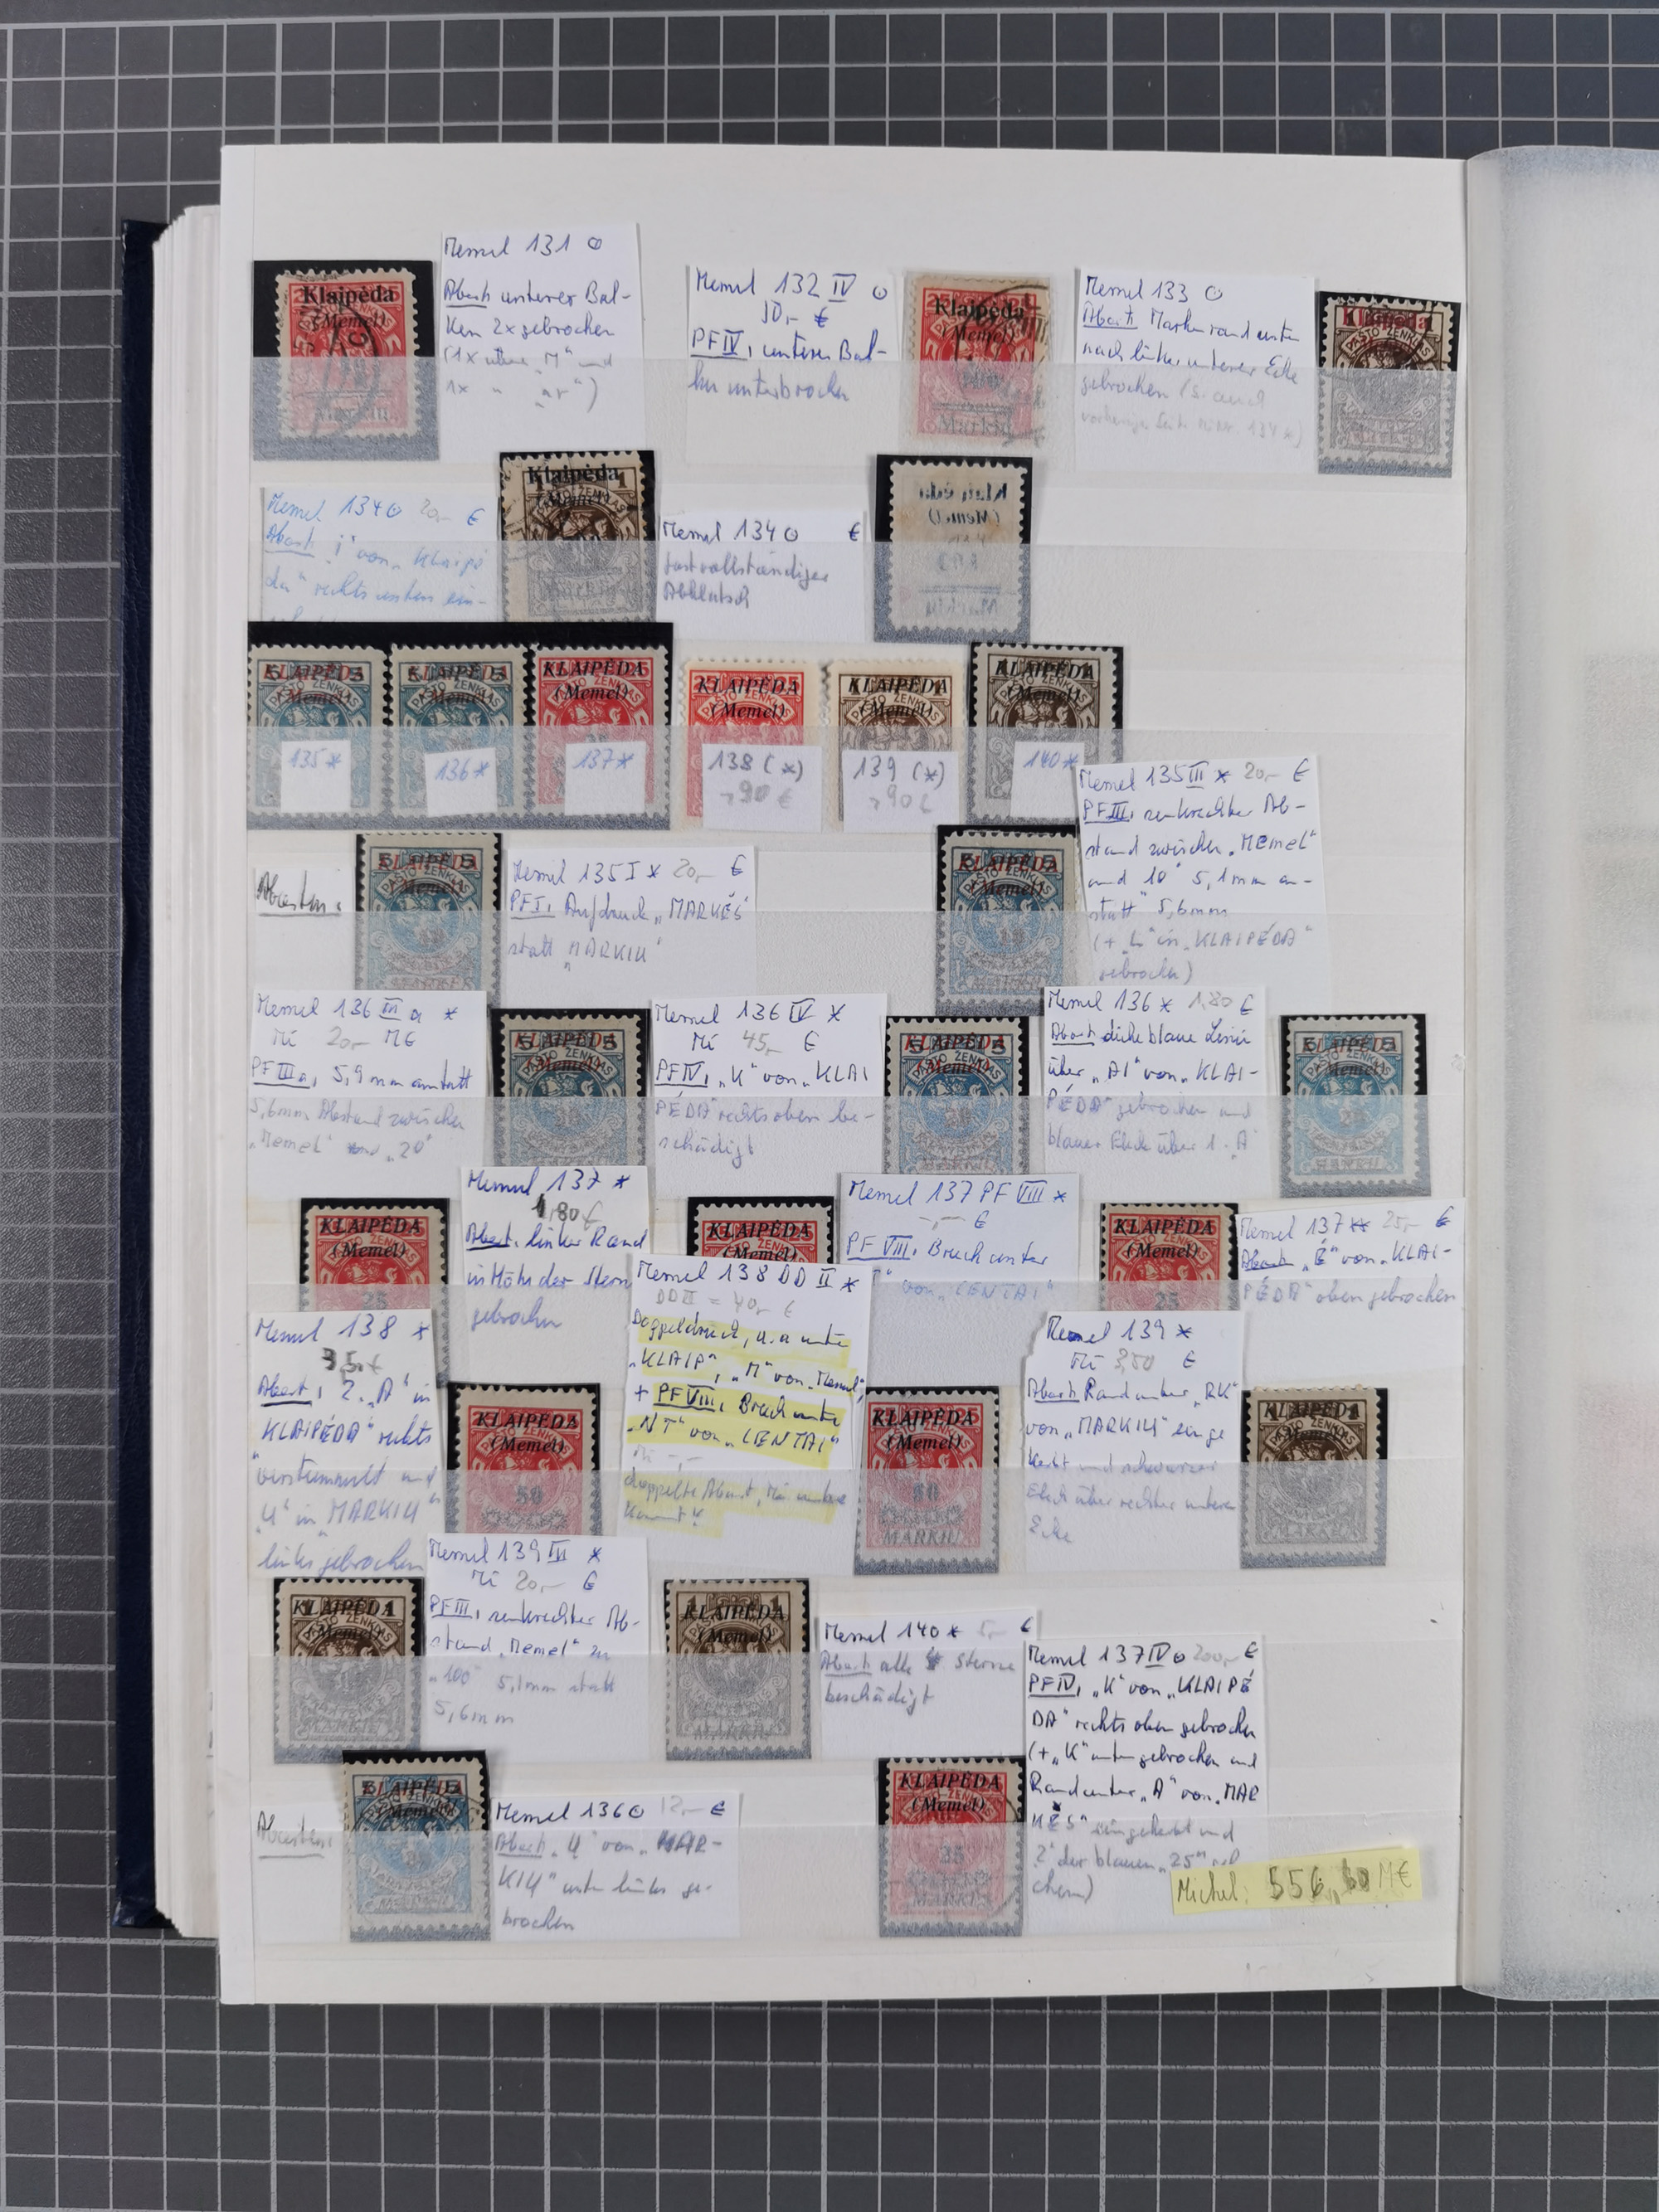 Memel 131 ⊙
Abart: unterer Bal-
ken 2x gebrochen
(1x über „M" und
1x " „ar")
Memel 132 IV ⊙
10,- €
PF IV, unterer Bal-
ken unterbrochen
Memel 133 ⊙
Abart: Markenrand unten
nach linker unterer Ecke
gebrochen (s. auch
Klaipėda
(Memel)
Markių
Klaipėda
(Memel)
Markių
Klaipėda
PASTO ZENKLAS
Memel 134 ⊙ 20,- €
Abart: „i" von „Klaipė
da" rechts unten ein-
Klaipėda
(Memel)
PASTO ZENKLAS
Markių
Memel 134 ⊙ €
fast vollständiger
Abklatsch
KLAIPĖDA
(Memel)
135 *
KLAIPĖDA
(Memel)
136 *
KLAIPĖDA
(Memel)
137 *
KLAIPĖDA
(Memel)
138 (*)
90 €
KLAIPĖDA
(Memel)
139 (*)
90 €
KLAIPĖDA
(Memel)
140 *
Memel 135 III * 20,- €
PF III, senkrechter Ab-
stand zwischen „Memel"
und „10" 5,1 mm an-
statt 5,6 mm
(+ „L" in „KLAIPĖDA"
gebrochen)
Abarten:
KLAIPĖDA
(Memel)
Memel 135 I * 20,- €
PF I, Aufdruck „MARKĖS"
statt „MARKIU"
KLAIPĖDA
(Memel)
Memel 136 III a *
Mi 20,- M€
PF III a, 5,9 mm anstatt
5,6 mm Abstand zwischen
„Memel" und „20"
KLAIPĖDA
(Memel)
Memel 136 IV *
Mi 45,- €
PF IV, „K" von „KLAI
PĖDA" rechts oben be-
schädigt
KLAIPĖDA
(Memel)
Memel 136 * 1,80 €
Abart: dicke blaue Linie
über „AI" von „KLAI-
PĖDA" gebrochen und
blauer Fleck über 1. „A"
KLAIPĖDA
(Memel)
KLAIPĖDA
(Memel)
25
Memel 137 *
1,80 €
Abart: linker Rand
in Höhe der Stern
gebrochen
KLAIPĖDA
(Memel)
Memel 137 PF VIII *
-,- €
PF VIII, Bruch unter
von „CENTAI"
KLAIPĖDA
(Memel)
25
Memel 137 ** 25,- €
Abart: „Ė" von „KLAI-
PĖDA" oben gebrochen
Memel 138 *
3,50 €
Abart, 2. „A" in
„KLAIPĖDA" rechts
verstümmelt und
„U" in „MARKIU"
links gebrochen
KLAIPĖDA
(Memel)
50
Memel 138 DD II *
DD II = 40,- €
Doppeldruck, u.a. unter
„KLAIP", „M" von „Memel",
+ PF VIII, Bruch unter
„NT" von „CENTAI"
Mi -,-
doppelte Abart, Mi unbe
kannt!
KLAIPĖDA
(Memel)
50
MARKIU
Memel 139 *
Mi 3,50 €
Abart: Rand unter „RK"
von „MARKIU" einge
kerbt und schwarzer
Fleck über rechter unterer
Ecke
KLAIPĖDA
(Memel)
MARKIU
KLAIPĖDA
(Memel)
MARKIU
Memel 139 III *
Mi 20,- €
PF III, senkrechter Ab-
stand „Memel" zu
„100" 5,1 mm statt
5,6 mm
KLAIPĖDA
(Memel)
MARKIU
Memel 140 * 5,- €
Abart: alle 4 Sterne
beschädigt
Memel 137 IV ⊙ 200,- €
PF IV, „K" von „KLAIPĖ
DA" rechts oben gebrochen
(+ „K" unten gebrochen und
Rand unter „A" von „MAR
KĖS" eingekerbt und
2 der blauen „25" gebro
chen)
Abarten:
KLAIPĖDA
Memel 136 ⊙ 12,- €
Abart: „U" von „MAR-
KIU" unten links ge-
brochen
KLAIPĖDA
(Memel)
25
MARKES
Michel: 556,60 M€